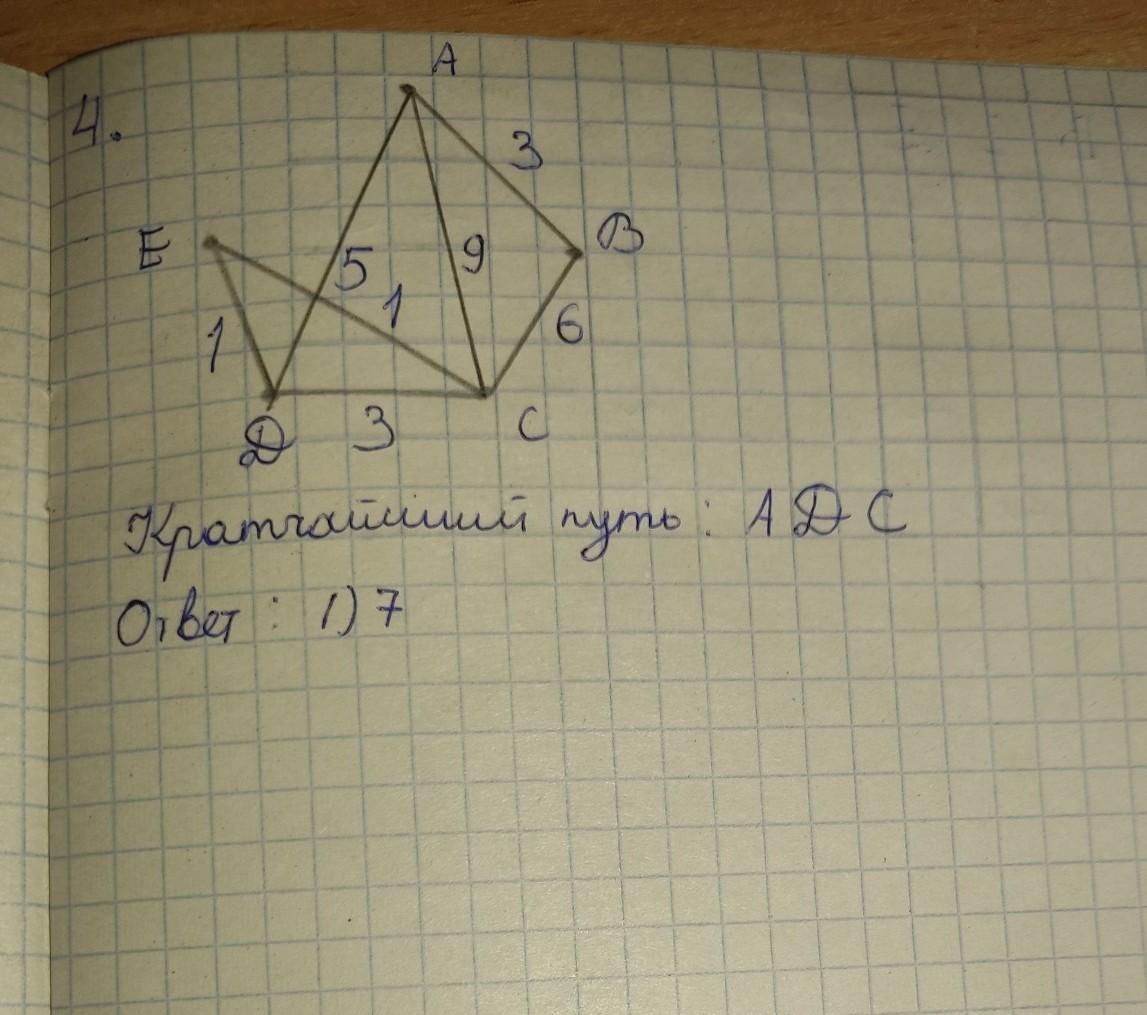 4.
A
3
E
B
5
9
1
6
1
D
3
C
Кратчайший путь: А D С
Ответ: 1) 7